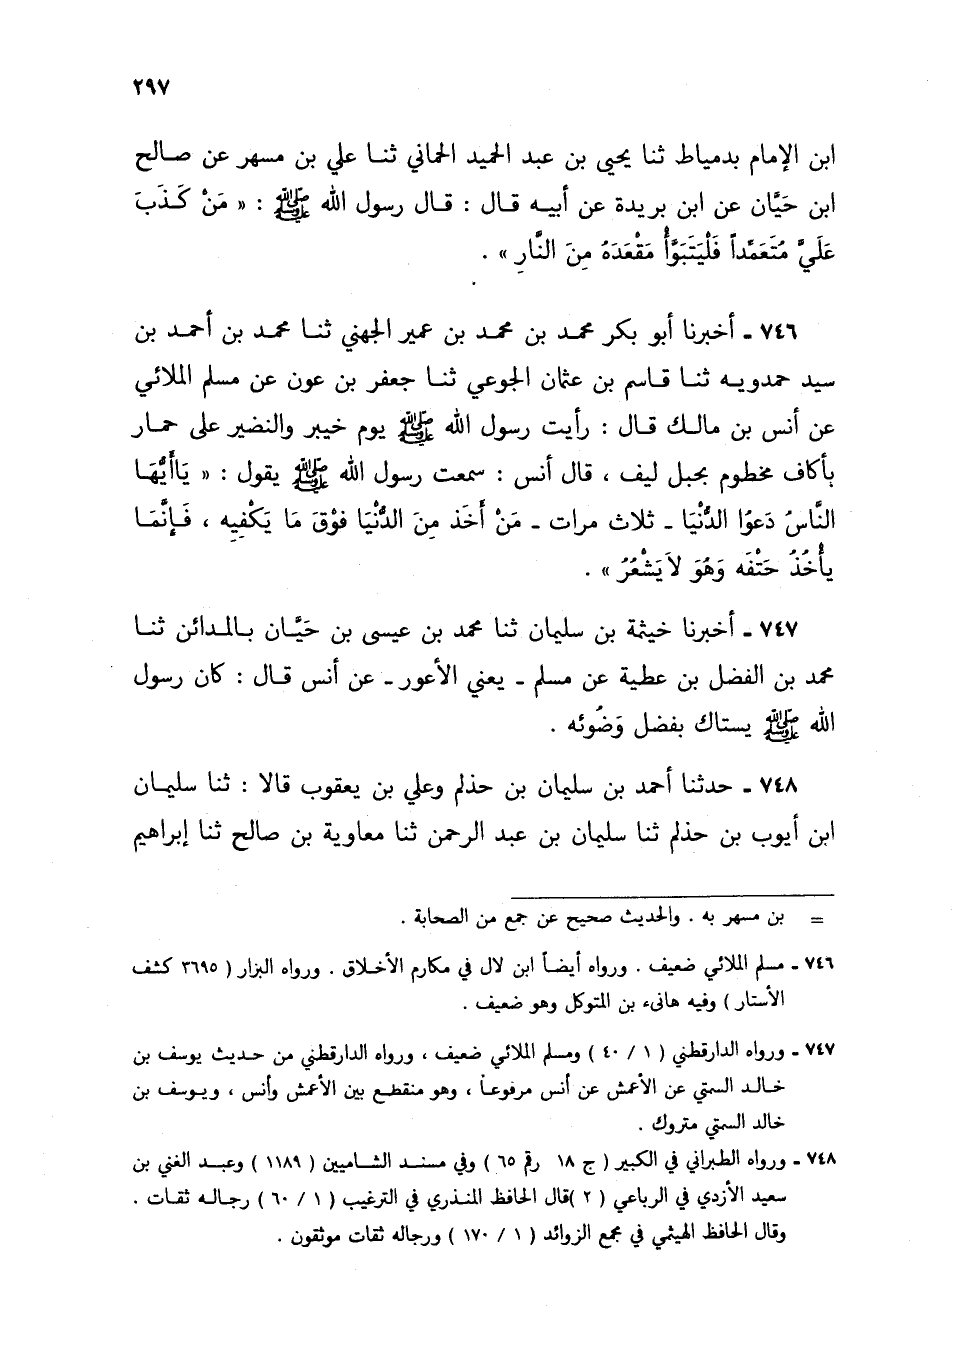 ٢٩٧
ابن الإمام بدمياط ثنا يحيى بن عبد الحميد الحماني ثنا علي بن مسهر عن صالح
ابن حَيَّان عن ابن بريدة عن أبيه قال : قال رسول الله ﷺ : « مَنْ كَذَبَ
عَلَيَّ مُتَعَمِّداً فَلْيَتَبَوَّأْ مَقْعَدَهُ مِنَ النَّارِ » .
٧٤٦ - أخبرنا أبو بكر محمد بن محمد بن عمير الجهني ثنا محمد بن أحمد بن
سيد حمدويه ثنا قاسم بن عثمان الجوعي ثنا جعفر بن عون عن مسلم الملائي
عن أنس بن مالك قال : رأيت رسول الله ﷺ يوم خيبر والنضير على حمار
بأكاف مخطوم بحبل ليف ، قال أنس : سمعت رسول الله ﷺ يقول : « يَاأَيُّهَا
النَّاسُ دَعوُا الدُّنْيَا - ثلاث مرات - مَنْ أَخَذ مِنَ الدُّنْيَا فوْقَ مَا يَكْفِيهِ ، فَإنَّمَا
يأْخُذُ حَتْفَه وَهُوَ لاَ يَشْعُرُ » .
٧٤٧ - أخبرنا خيثمة بن سليمان ثنا محمد بن عيسى بن حَيَّان بالمدائن ثنا
محمد بن الفضل بن عطية عن مسلم - يعني الأعور - عن أنس قال : كان رسول
الله ﷺ يستاك بفضل وَضُوئه .
٧٤٨ - حدثنا أحمد بن سليمان بن حذلم وعلي بن يعقوب قالا : ثنا سليمان
ابن أيوب بن حذلم ثنا سليمان بن عبد الرحمن ثنا معاوية بن صالح ثنا إبراهيم
= بن مسهر به . والحديث صحيح عن جمع من الصحابة .
٧٤٦ - مسلم الملائي ضعيف . ورواه أيضاً ابن لال في مكارم الأخلاق . ورواه البزار ( ٣٦٩٥ كشف
الأستار ) وفيه هانىء بن المتوكل وهو ضعيف .
٧٤٧ - ورواه الدارقطني ( ١ / ٤٠ ) ومسلم الملائي ضعيف ، ورواه الدارقطني من حديث يوسف بن
خالد السمتي عن الأعمش عن أنس مرفوعاً ، وهو منقطع بين الأعمش وأنس ، ويوسف بن
خالد السمتي متروك .
٧٤٨ - ورواه الطبراني في الكبير ( ج ١٨ رقم ٦٥ ) وفي مسند الشاميين ( ١١٨٩ ) وعبد الغني بن
سعيد الأزدي في الرباعي ( ٢ )قال الحافظ المنذري في الترغيب ( ١ / ٦٠ ) رجاله ثقات .
وقال الحافظ الهيثمي في مجمع الزوائد ( ١ / ١٧٠ ) ورجاله ثقات موثقون .